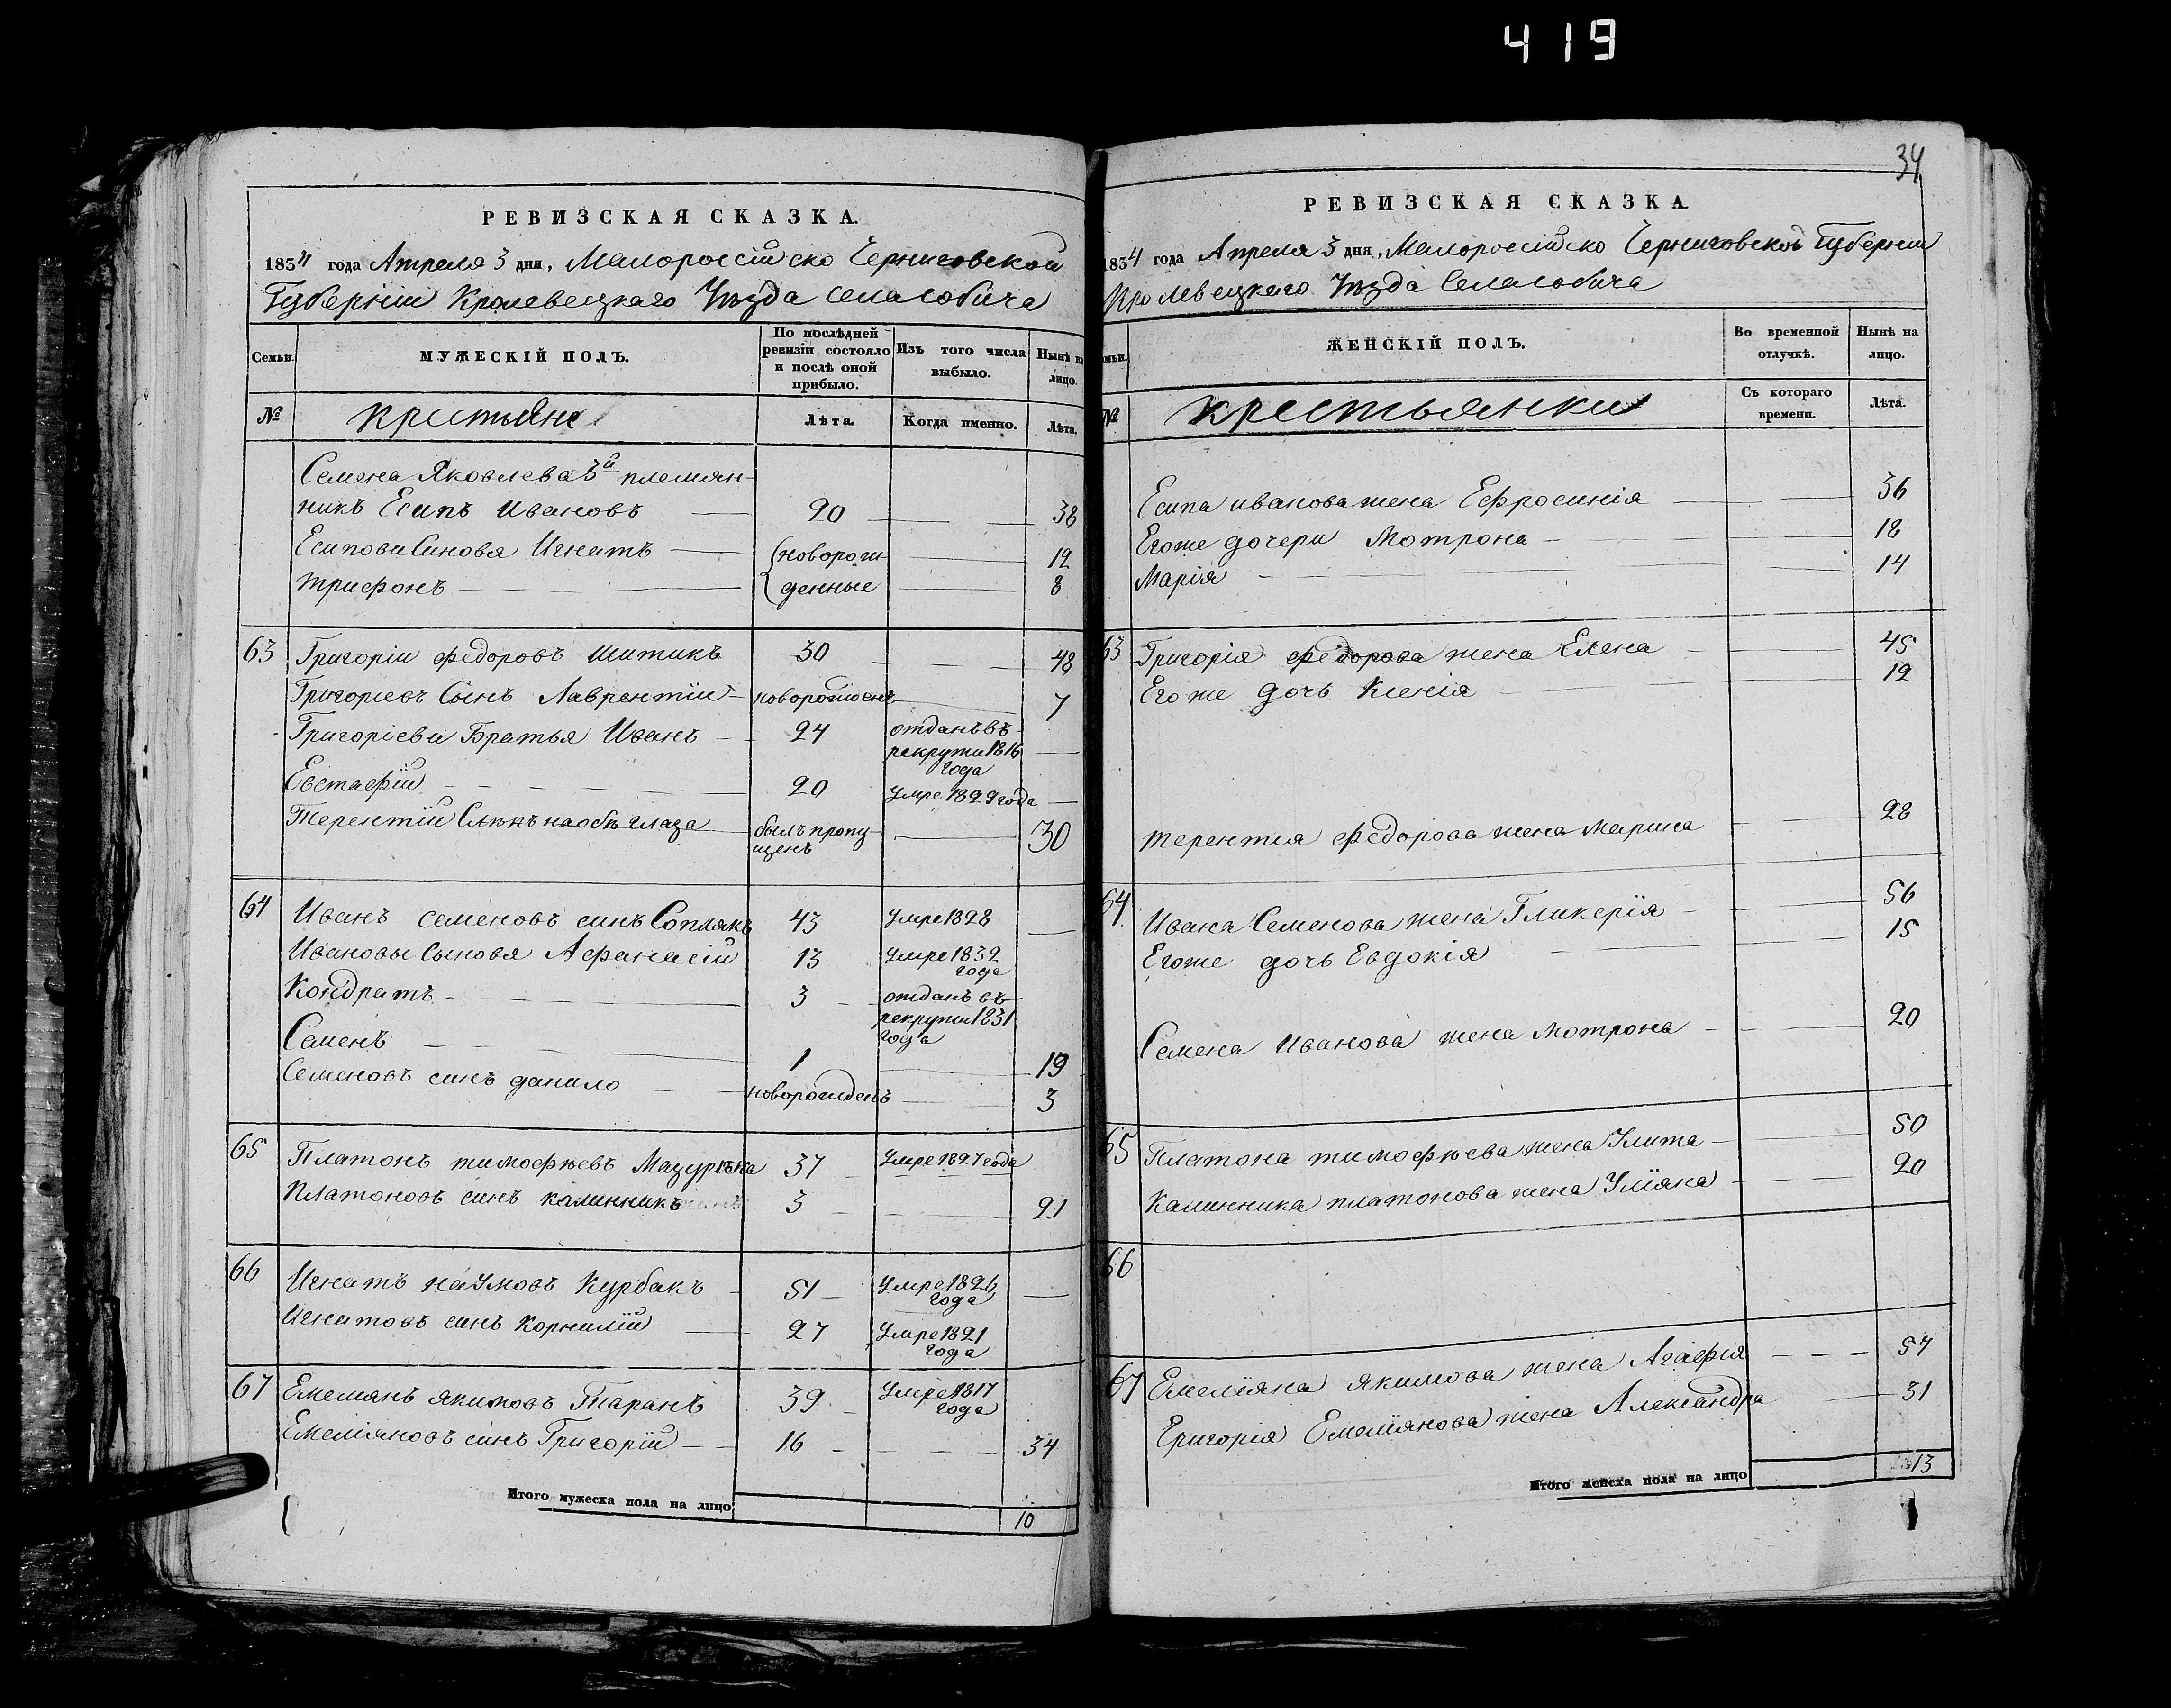 419
РЕВИЗСКАЯ СКАЗКА.
1834 года Апреля 3 дня, Малороссійско Черниговской
Губерніи Кролевецкаго Уѣзда села Собича
Семьи.
МУЖЕСКІЙ ПОЛЪ.
По послѣдней ревизіи состояло и послѣ оной прибыло.
Изъ того числа выбыло.
Нынѣ на лицо.
№
крестьяне
Лѣта.
Когда именно.
Лѣта.
Семена Яковлева 3й племян-
никъ Есипъ Ивановъ 20 38
Есипови Синовя Игнатъ (новорож- 12
трифонъ денные 8
63 Григоріи федоровъ Шитикъ 30 48
Григориевъ Сынъ Лаврентіи новорожденъ 7
Григоріеви Братья Иванъ 24 отданъ въ
рекрути 1816
года
Евстафіи 20 Умре 1829 года
Терентіи Слѣпъ на обѣ глаза былъ пропу- 30
щенъ
64 Иванъ семеновъ синъ Соплякъ 43 Умре 1828
Ивановы Сыновя Афанасіи 13 Умре 1832
года
Кондратъ 3 отданъ въ
рекрути 1831
года
Семенъ 1 19
Семеновъ синъ данило новорожденъ 3
65 Платонъ тимофѣевъ Мацурѣка 37 Умре 1827 года
Платоновъ синъ калинникъ 3 21
66 Игнатъ наумовъ Курбакъ 51 Умре 1826
года
Игнатовъ синъ Корнилій 27 Умре 1821
года
67 Емелянъ якимовъ Таранъ 39 Умре 1817
года
Емеліяновъ синъ Григоріи 16 34
Итого мужеска пола на лицо 10
34
РЕВИЗСКАЯ СКАЗКА
1834 года Апреля 3 дня, Малороссійско Черниговской Губерніи
Кролевецкаго Уѣзда Села Собича
ЖЕНСКІЙ ПОЛЪ.
Во временной отлучкѣ.
Нынѣ на лицо.
№
крестьянки
Съ котораго времени.
Лѣта.
Есипа иванова жена Ефросинія 36
Егоже дочери Мотрона 18
Марія 14
63 Григорія федорова жена Елена 45
Егоже дочь Ксенія 12
терентия федорова жена Марина 28
64 Ивана Семенова жена Гликерія 56
Егоже дочь Евдокія 15
Семена Иванова жена Мотрона 20
65 Платона тимофѣева жена Улита 50
Калинника платонова жена Уліяна 20
66
67 Емеліяна якимова жена Агафія 57
Григорія Емеліянова жена Александра 31
Итого женска пола на лицо 13